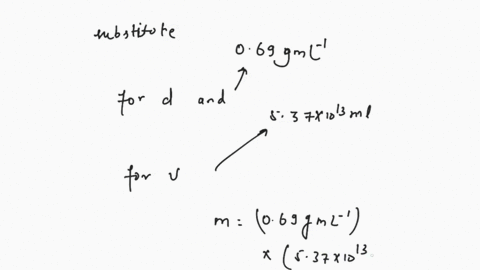 substitute
0.69 gmL⁻¹
for d and
5.37×10¹³ ml
for v
m = (0.69 g mL⁻¹)
× (5.37×10¹³